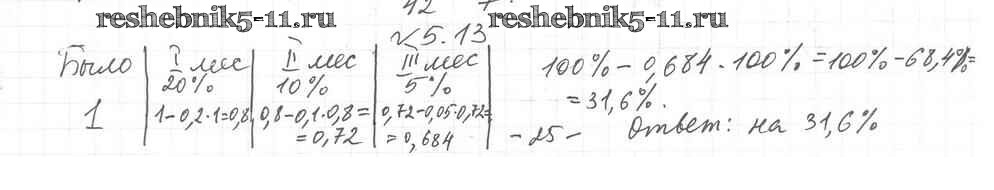 reshebnik5-11.ru reshebnik5-11.ru
√5.13
Было | I мес 20% | II мес 10% | III мес 5%
1 | 1-0,2·1=0,8 | 0,8-0,1·0,8= =0,72 | 0,72-0,05·0,72= =0,684
100% - 0,684·100% = 100% - 68,4% =
= 31,6%.
Ответ: на 31,6%
- 25 -